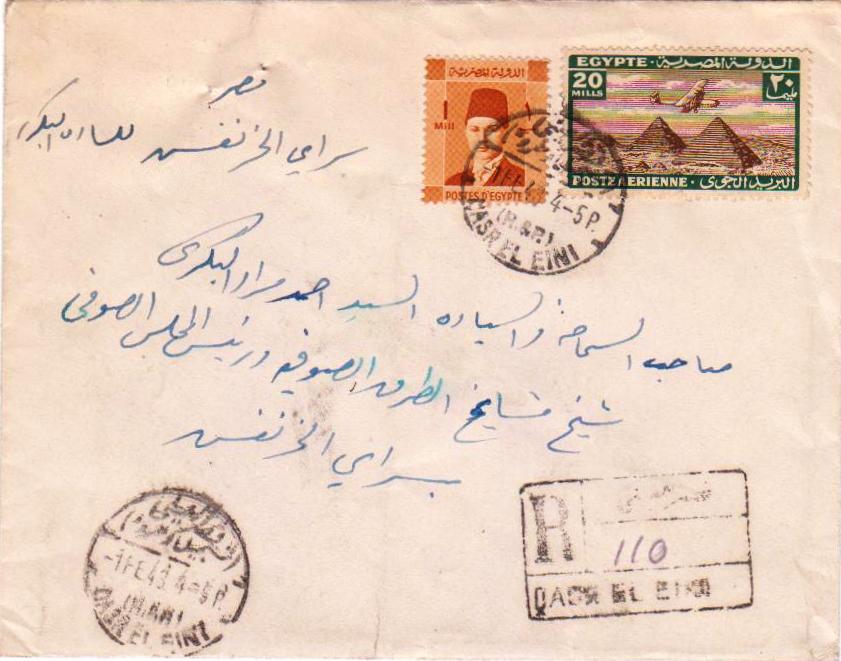 مصر
سراي الخرنفش للساده البكريه
الدولة المصرية
١
1
Mill
POSTES D'EGYPTE
EGYPTE الدولة المصرية
20
MILLS
٢٠
مليما
POSTE AERIENNE البريد الجوى
4-5 P.
(R.&P.)
QASR EL EINI
صاحب السماحة والسياده السيد احمد مراد البكرى
شيخ مشايخ الطرق الصوفيه ورئيس المجلس الصوفى
بسراي الخرنفش
-1 FE 43 4-5 P.
(R.&P.)
QASR EL EINI
R
قصر العينى
110
QASR EL EINI